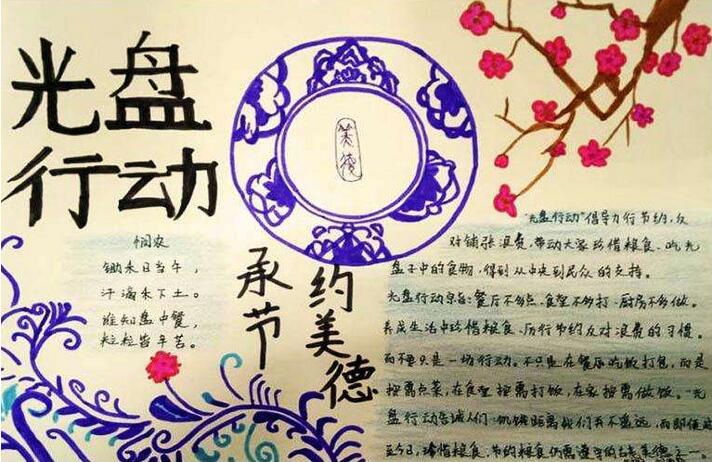 光盘
行动
美德
承节
约美德
悯农
锄禾日当午，
汗滴禾下土。
谁知盘中餐，
粒粒皆辛苦。
"光盘行动"倡导厉行节约，反
对铺张浪费，带动大家珍惜粮食、吃光
盘子中的食物，得到从中央到民众的支持。
光盘行动宗旨：餐厅不多点、食堂不多打、厨房不多做。
养成生活中珍惜粮食、厉行节约反对浪费的习惯。
而不要只是一场行动。不只是在餐厅吃饭打包，而是
按需点菜，在食堂按需打饭，在家按需做饭。光
盘行动告诫人们：饥饿距离我们并不遥远，而即便
至今日，珍惜粮食，节约粮食仍需遵守的古老美德之一。